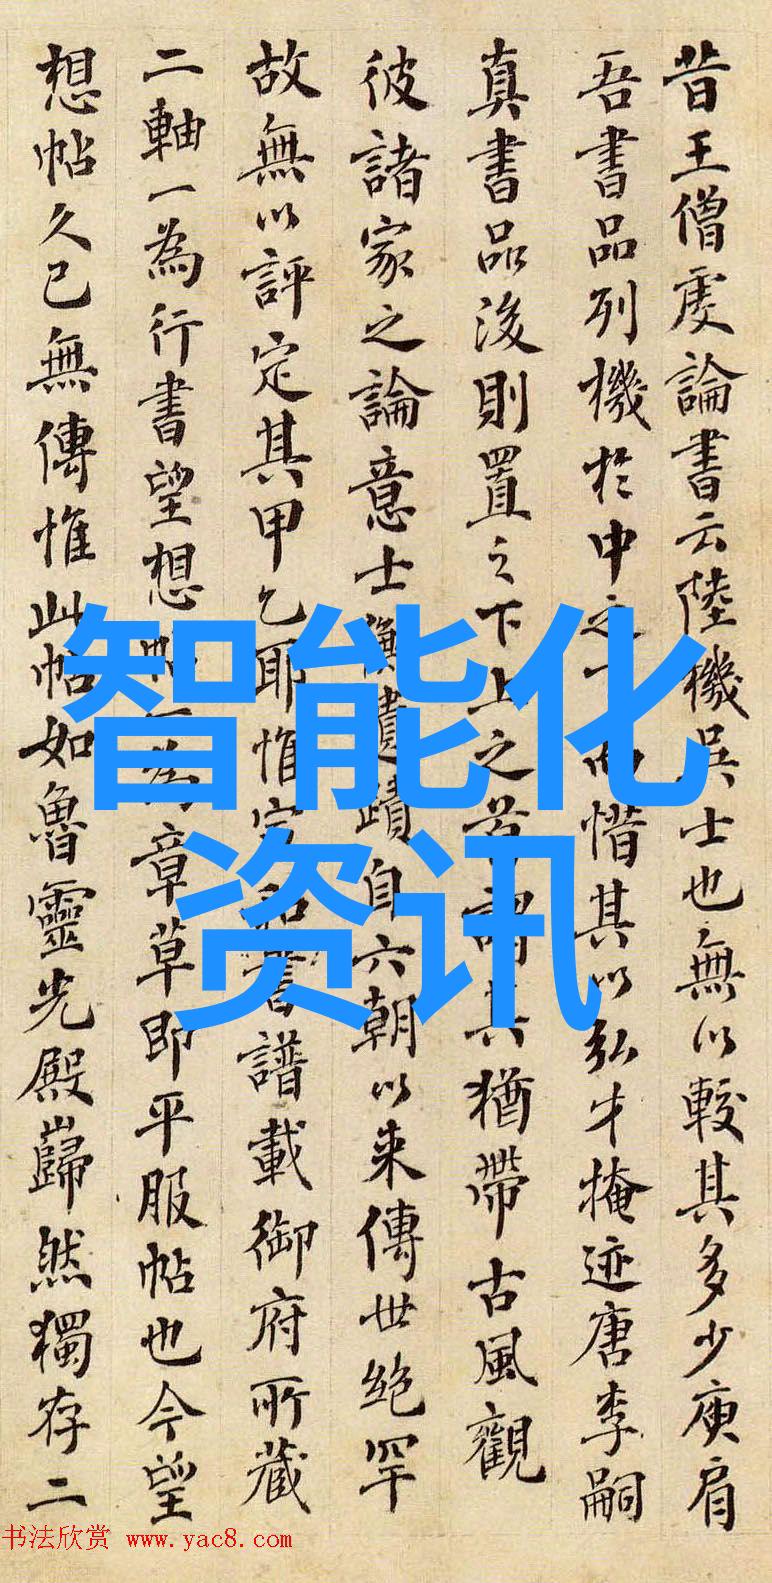 昔王僧虔論書云陸機吳士也無以較其多少庾肩
吾書品列機於中之下而惜其以弘才掩迹唐李嗣
真書品後則置之下上之首謂其猶帶古風觀
彼諸家之論意士衡遺蹟自六朝以来傳世絶罕
故無以評定其甲乙耶惟宣和書譜載御府所藏
二軸一為行書望想帖一為章草即平服帖也今望
想帖久已無傳惟此帖如魯靈光殿巋然獨存二
智能化
资讯
书法欣赏 www.yac8.com